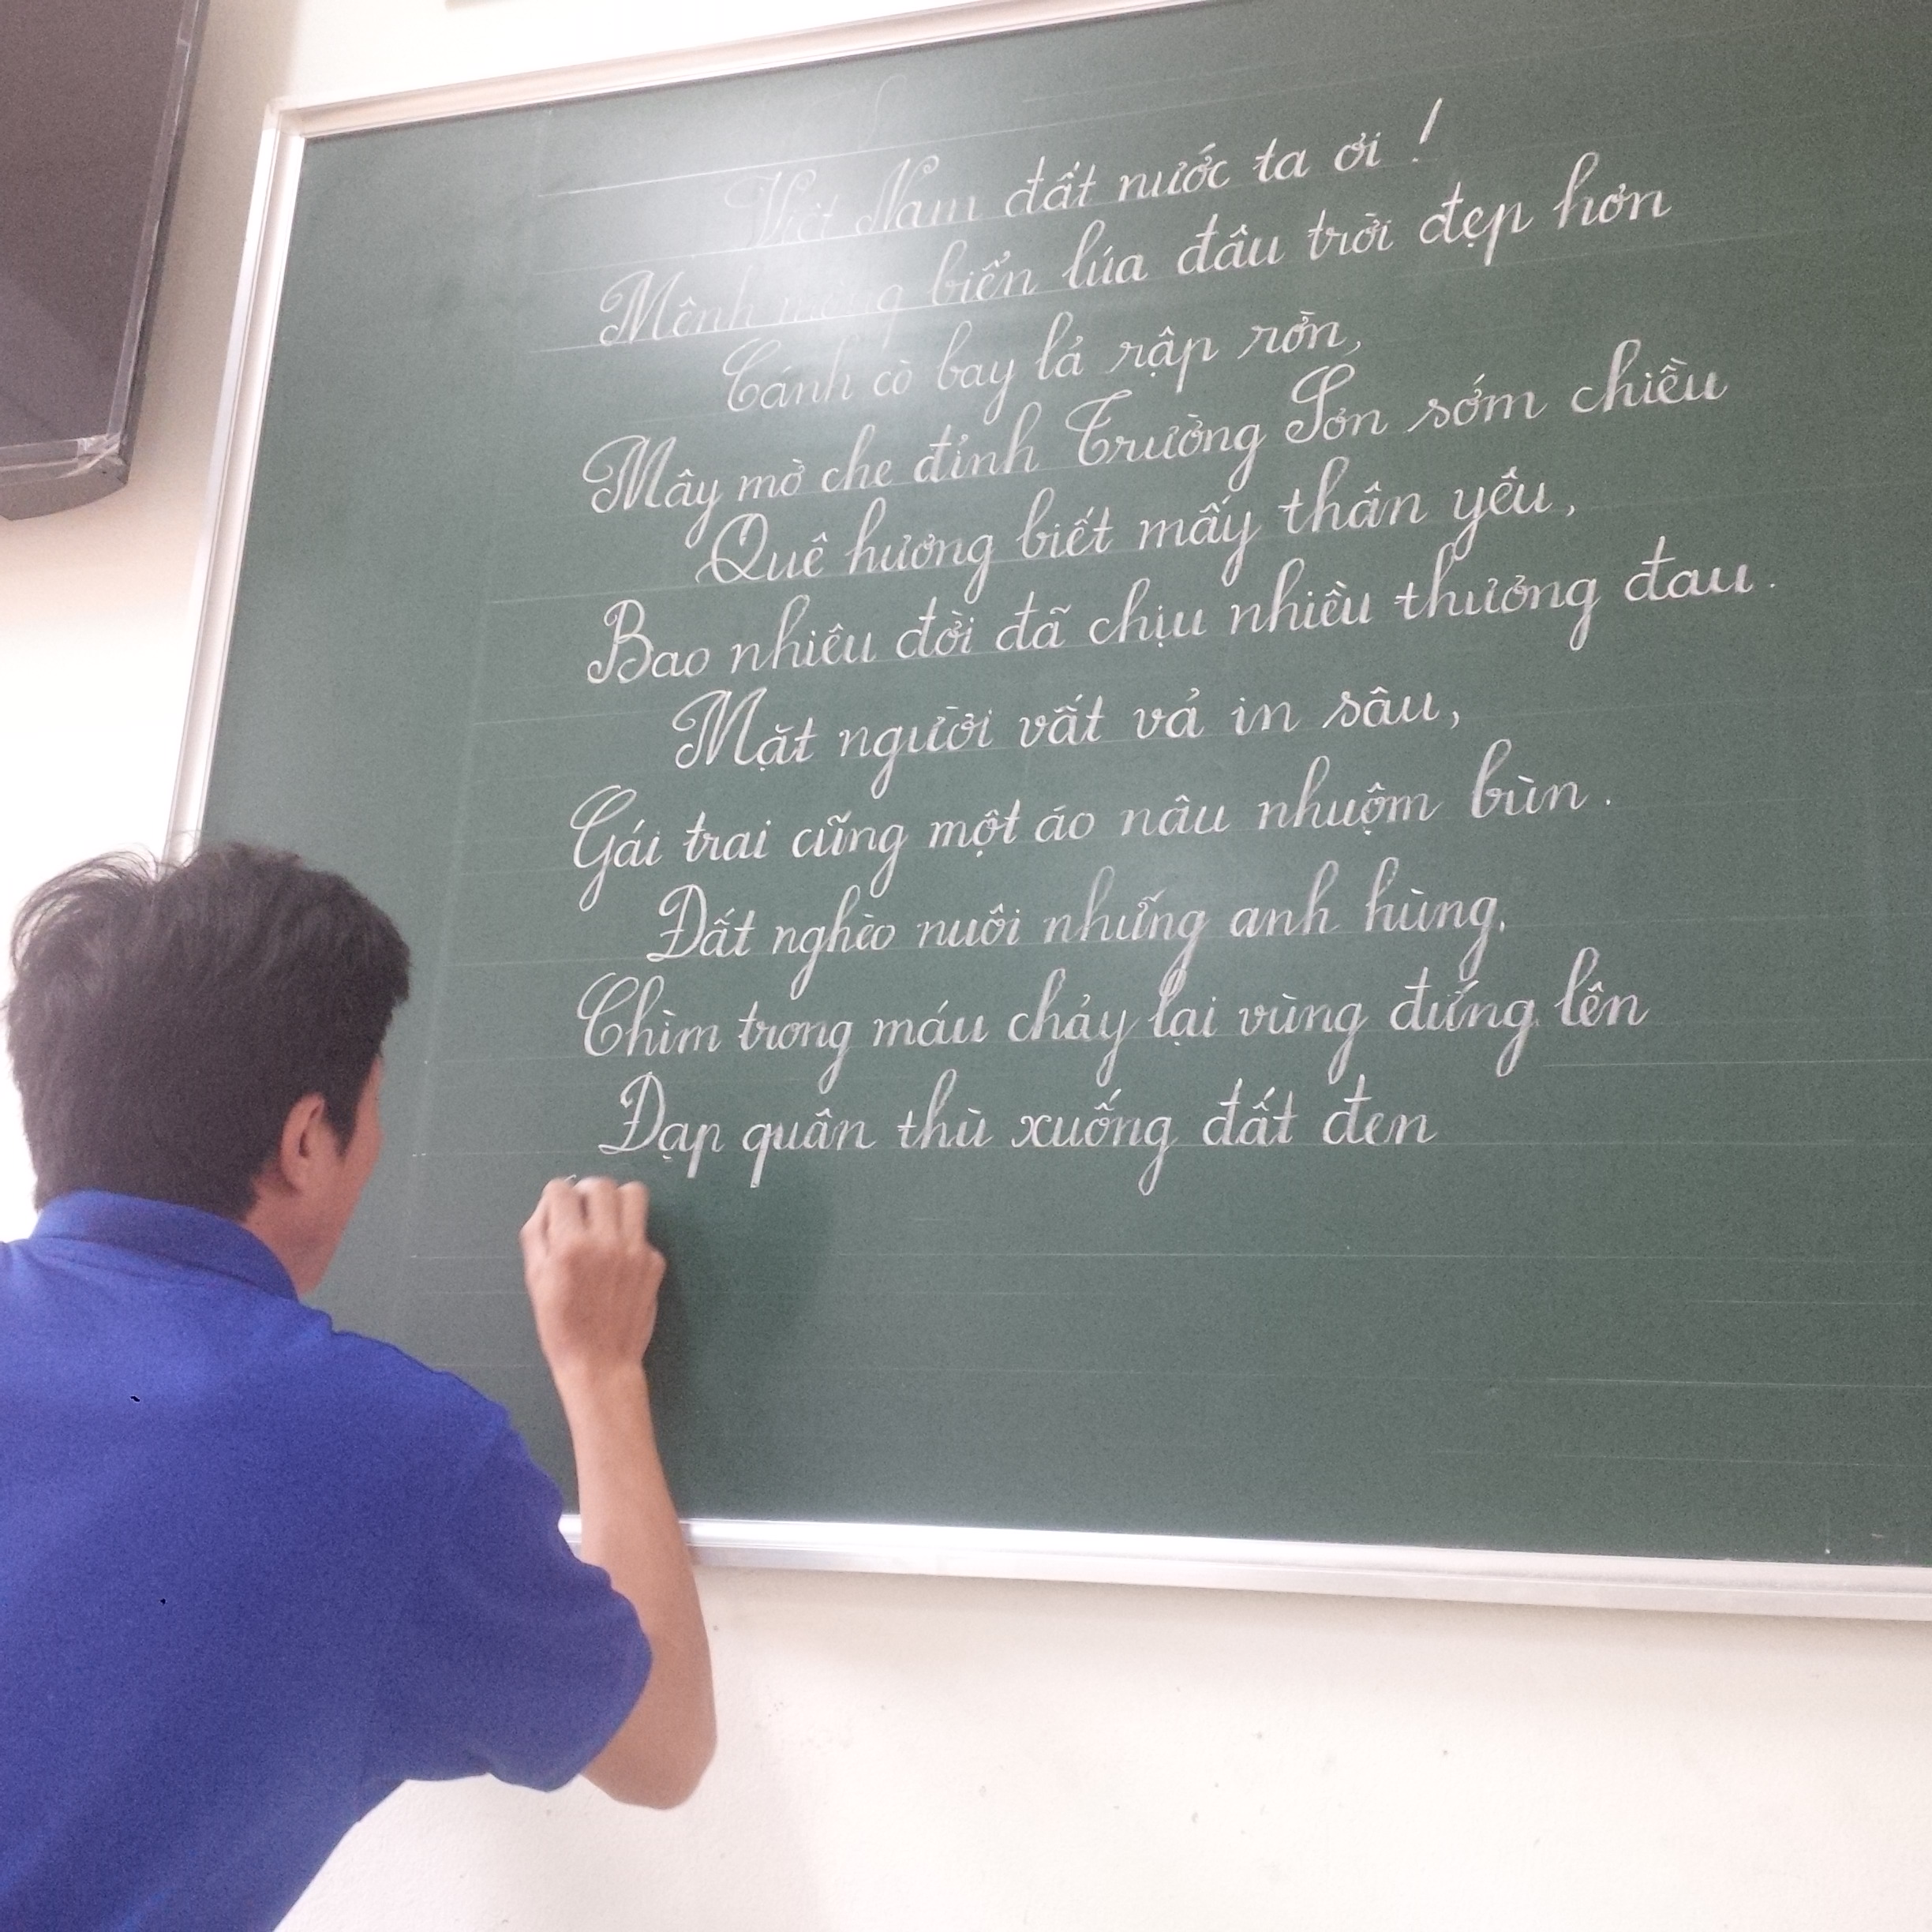 Việt Nam đất nước ta ơi !
Mênh mông biển lúa đâu trời đẹp hơn
Cánh cò bay lả rập rờn,
Mây mờ che đỉnh Trường Sơn sớm chiều
Quê hương biết mấy thân yêu,
Bao nhiêu đời đã chịu nhiều thương đau.
Mặt người vất vả in sâu,
Gái trai cũng một áo nâu nhuộm bùn.
Đất nghèo nuôi những anh hùng.
Chìm trong máu chảy lại vùng đứng lên
Đạp quân thù xuống đất đen